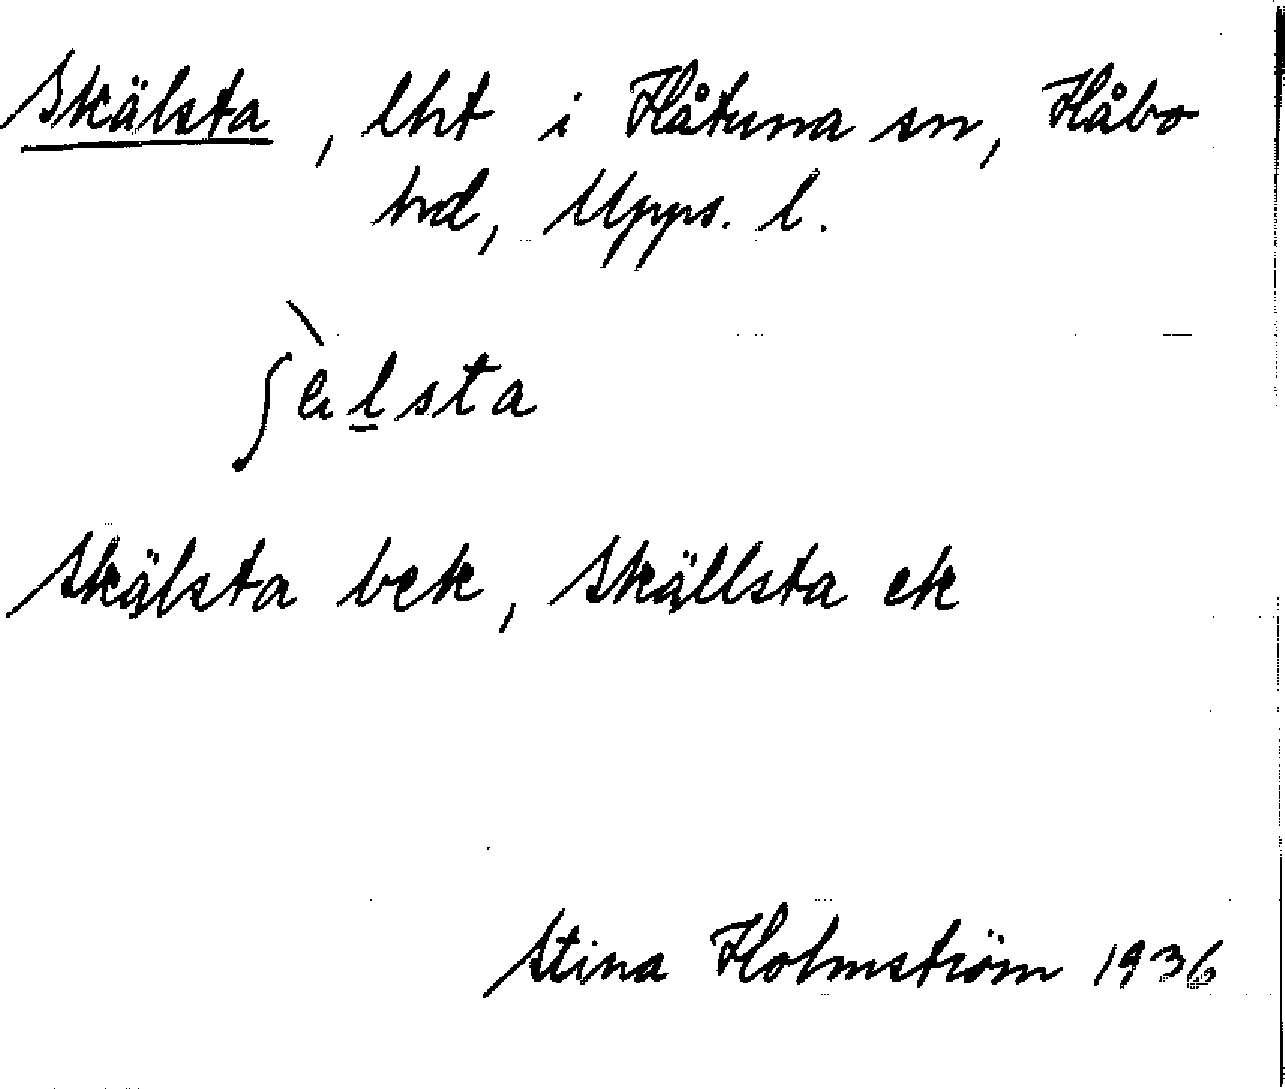 Skälsta, lht i Håtuna sn, Håbo
hd, Upps. l.
ʃὲlsta
Skälsta bek, Skällsta ek
Stina Holmström 1936